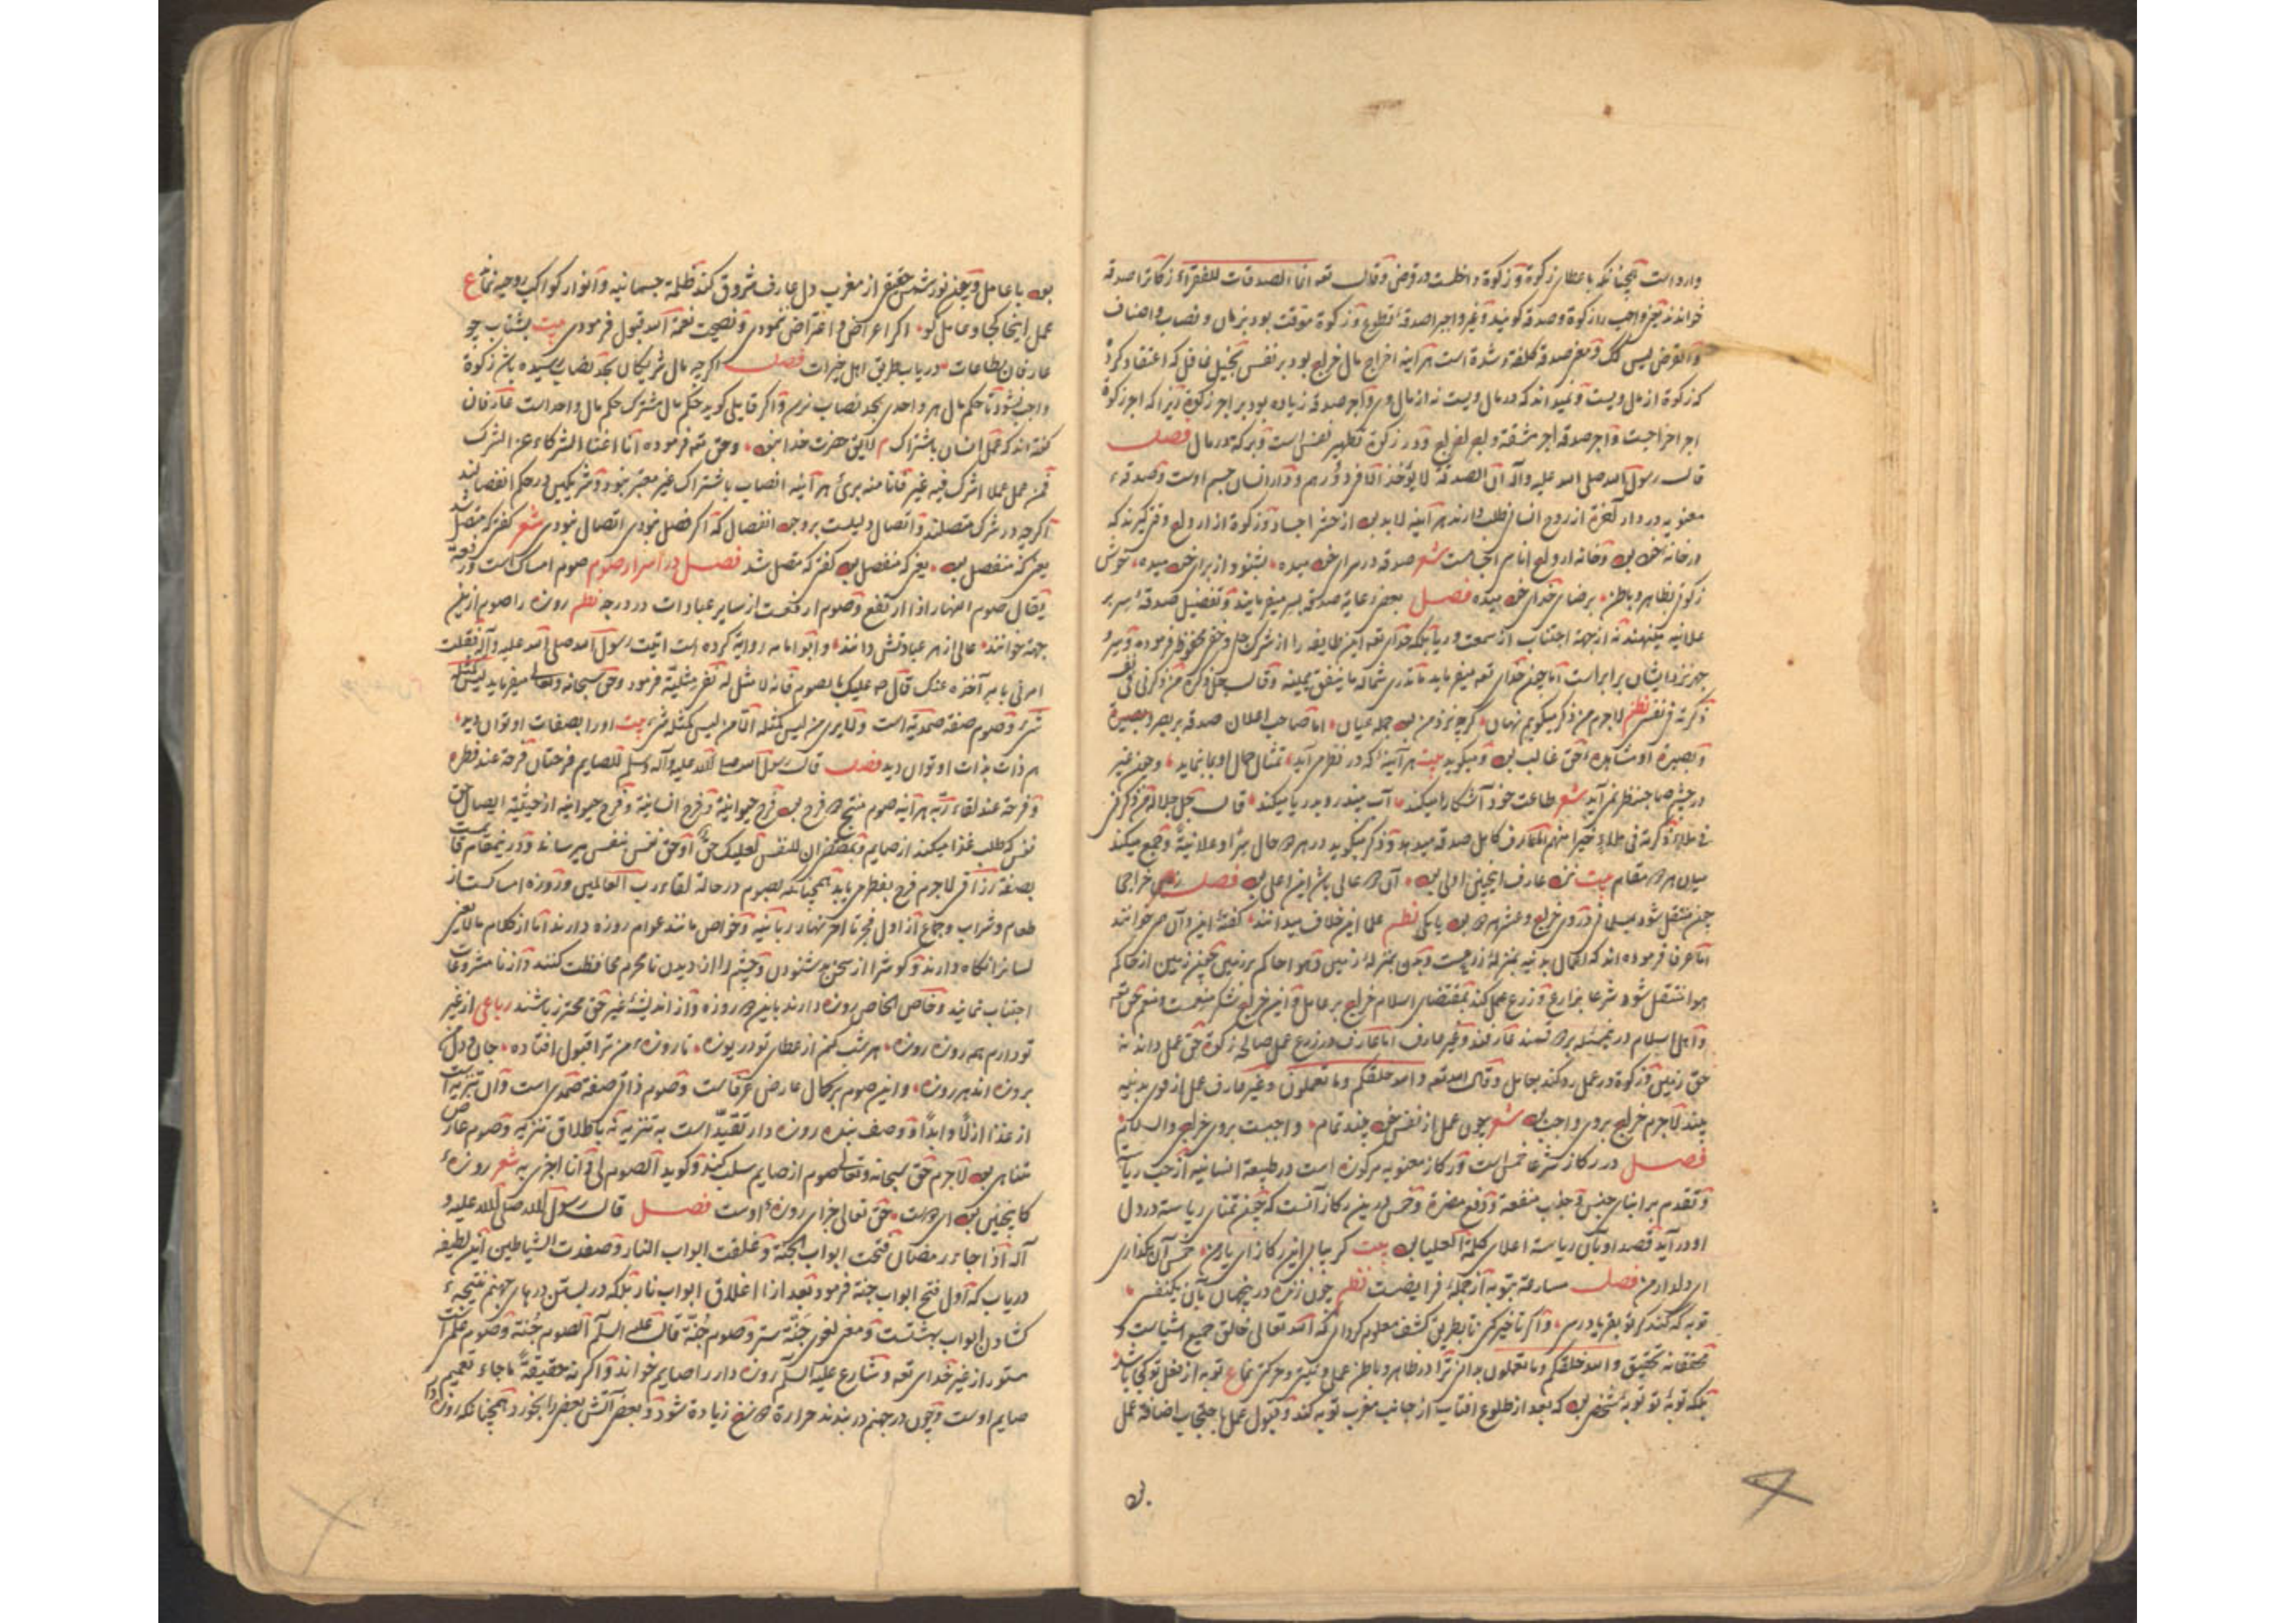 وارد است همچنانکه باعطای زکوة و زکوة داخلست در قرض و قال تعه انما الصدقات للفقراء زکاترا صدقه
خواندند یعنی واجب را زکوة و صدقه کویند و غیر واجبرا صدقهٔ تطوع و زکوة موقت بود بزمان و نصاب و اصناف
و القرض لیس کذلک و معنی صدقه کلفة و شدة است هر آینه اخراج مال خراج بود بر نفس بخیل غافل که اعتقاد کرده
که زکوة از مال ویست و نمیداند که در مال ویست نه از مال وی و اجر صدقه زیاده بود بر اجر زکوة زیرا که اجر زکوة
اجر اخراجست و اجر صدقه اجر مشقة و اجر اخراج و در زکوة تطهیر نفس است و برکة در مال فصل
قال رسول الله صلی الله علیه و آله ان الصدقة لا یؤخذ الا فی دورهم و دار انسان جسم اوست و صدقهٔ
معنویه در دار آخرة از روح انسانی طلب دارند هر آینه لابد بود از حشر اجساد و زکوة از ارواح وقتی کیرند که
در خانهٔ خود بود و خانهٔ ارواح اناسی اجسامست شعر صدقه در سرای خود میده بشنو و از برای خود میده خوش
زکوتی بظاهر و باطن برضای خدای خود میده فصل بعضی رعایة صدقهٔ سر میفرمایند و تفضیل صدقهٔ سر بر
علانیه مینهند نه از جهة اجتناب از سمعت و ریا بلکه خدای تعه این طایفه را از شرک جلی و خفی محفوظ فرموده و سر و
جهر نزد ایشان برابر است اما چون خدای تعه میفرماید ما تدری شماله ما ینفق یمینه و قال جل ذکره من ذکرنی فی نفسه
ذکرته فی نفسی نظم لاجرم من ذکر میکویم نهان کرچه نزد من بود جمله عیان اما صاحب اعلان صدقه بر بصر و بصیرة
و بصیرة او مشاهدهٔ حق غالب بود و میکوید بیت هر آینهٔ که در نظر می آید تمثال جمال او بما بنماید و چون غیر
در چشم صاحبنظر نمی آید شعر طاعت خود آشکارا میکند آب میندر و بدریا میکند قال جل جلاله من ذکرنی
فی ملاء ذکرته فی ملاء خیر منهم المعارف کامل صدقه میدهد و ذکر میکوید در هر دو حال سرا و علانیة و جمع میکند
میان هر دو مقام بیت نزد عارف اینچنین اولی بود آن دو عالی باش این اعلی بود فصل زمین خراجی
چون منتقل شود بمسلمانی در وی خراج و عشر هر دو بود یا یکی نظم علما این خلاف میدانند کفتهٔ این و آن همی خوانند
اما عرفا فرموده اند که اعمال بدنیه بمنزلهٔ زرعست و بدن بمنزلهٔ زمین و هوا حاکم بر زمین و چون زمین از حاکم
هوا منتقل شود بشرع بزارع و زرع عمل کند بمقتضای اسلام خراج بر عامل و این خراج شکر منعمست و منعم حق تعه
و اهل اسلام در نعیمند بر دو قسمند عارفند و غیر عارف اما عارف در زرع عمل صالح زکوة حق عمل داند نه
حق زمین و زکوة در عمل رو کند بعامل و قال الله تعه و الله خلقکم و ما تعملون و غیر عارف عمل از قوی بدنیه
بیند لاجرم خراج بروی واجب بود شعر چون عمل از نفس خود بیند تمام واجبست بروی خراجی والسلام
فصل در رکاز شرعا خمس است و رکاز معنویه مرکوزه است در طبیعة انسانیه از حب ریاست
و تقدم بر ابنای جنس و جذب منفعة و دفع مضرة و خمس در این رکاز آنست که چون تمنای ریاسة در دل
او در آید قصد او بآن ریاسة اعلای کلمة العلیا بود بیت کر بیابی این رکاز ای یار من خمس آن بکذاری
ای دلدار من فصل مسارعة بتوبه از جمله فرایضست نظم چون زنده در نجهان بآن یکنفس
توبه که کند کر بفریاد رسی و اکر تاخیر کنی تا بطریق کشف معلوم کردانی که الله تعالی خالق جمیع اشیاست و
محققانه تحقیق و الله خلقکم و ما تعملون بدانی ترا در ظاهر و باطن عمل و نیة و حرکتی نماند ع توبه از فعل تو کی باشد
بلکه توبهٔ تو توبهٔ شخصی بود که بعد از طلوع افتاب از جانب مغرب توبه کند و قبول عمل باحتجاب اضافهٔ عمل
بود با عامل و بعد نور شمس حقیقی از مغرب دل عارف شروق کند ظلمة جسمانیه و انوار کواکب روحیه نماند ع
عمل اینجا کجا و عامل کو اکر اعراض و اعتراض نمودی و نصیحت نعمة الله قبول فرمودی بیت بشتاب چو
عارفان بطاعات دریاب طریق اهل خیرات فصل اکر چه مال شریکان بحد نصاب رسیده باشد زکوة
واجب نشود تا حکم مال هر واحدی بحد نصاب نرسد و اکر قایلی کوید حکم مال مشترک حکم مال واحد است عارفان
کفته اند که عمل انسان باشتراک لایق حضرت خدا نبود و حق تعه فرموده انا اغنا الشرکاء عن الشرک
فمن عمل عملا اشرک فیه غیری فانا منه بریء هر آینه انصاب باشتراک غیر معتبر بود و شریکین در حکم انفصالند
اکرچه در شرک متصلند و اتصال دلیلست بر وجود انفصال که اکر فصل نبودی اتصال نبودی شعر کفتم که متصل شد
یعنی که منفصل بود یعنی که منفصل بود کفتم که متصل شد فصل در اسرار صوم صوم امساکست و رفعة
یقال صوم النهار اذا ارتفع و صوم ارفعست از سایر عبادات در درجه نظم روزه را صوم از این
جهة خوانند عالی از هر عبادتش دانند و ابو امامه روایة کرده است اتیت رسول الله صلی الله علیه و آله فقلت
امرنی بامر آخذه عنک قال صم علیک بالصوم فانه لا مثل له نفی مثلیة فرمود و حق سبحانه و تعالی میفرماید لیس کمثله
شیء و صوم صفة صمدیة است و لا یری من لیس کمثله الا من لیس کمثله شیء بیت او را بصفات او توان دید
هم ذات بذات او توان دید فصل قال رسول الله صلی الله علیه و آله و سلم للصایم فرحتان فرحة عند فطره
و فرحة عند لقاء ربه هر آینه صوم منتج دو فرح بود فرح حیوانیة و فرح انسانیة و فرح حیوانیه از حیثیة ایصال حق
نفس که طلب غذا میکند از صایم و بمقتضی ان لنفسک علیک حق او حق نفس بنفس میرساند و در نیمقام قایمست
بصفة رزاقی لاجرم فرح بفطر می یابد همچنانکه بصوم در حالة لقاء رب العالمین و روزه امساکست از
طعام و شراب و جماع از اول فجر تا اخر نهار ربانیه و خواص مانند عوام روزه دارند اما از کلام ما لا یعنی
لسانرا نکاه دارند و کوشرا از سخن بد شنودن و چشم را از دیدن نامحرم محافظت کنند و از نامشروعات
اجتناب نمایند و خاص الخاص روزه دارند باین دو روزه و از اندیشهٔ غیر حق محترز باشند رباعی از غیر
تو دارم همه روزه روزه هر شب کنم از عطای تو دریوزه تا روزهٔ من ترا قبول افتاده جان و دل من
بروزه اند هر روزه و این صوم بر کمال عارض عرفاست و صوم ذاتی صفة صمدی است و آن تنزیه است
از غذا ازلا و ابدا و وصف بنده روزه دار تقیید است به تنزیه نه باطلاق تنزیه و صوم عارض
متناهی بود لاجرم حق سبحانه و تعالی صوم از صایم سلب کند و کوید الصوم لی و انا اجزی به شعر روزهٔ
کاینچنین بود ای دوست حق تعالی جزای روزهٔ اوست فصل قال رسول الله صلی الله علیه و
آله اذا جاء رمضان فتحت ابواب الجنة و غلقت ابواب النار و صفدت الشیاطین این لطیفه
دریاب که اول فتح ابواب جنة فرمود بعد از آن اغلاق ابواب نار بلکه در بستن درهای جهنم نتیجهٔ
کشادن ابواب بهشتست و معنی لغوی جنة ستر و صوم جنة قال علیه السلم الصوم جنة و صوم عملی است
مستور از غیر خدای تعه و شارع علیه السلم روزه دار را صایم خواند و اکر نه حقیقة ما جاء نعمیم
صایم اوست و چون در جهنم در بندند حرارة دوزخ زیادة شود و بعضی آتش بعضی را بخورد همچنانکه روزه دار